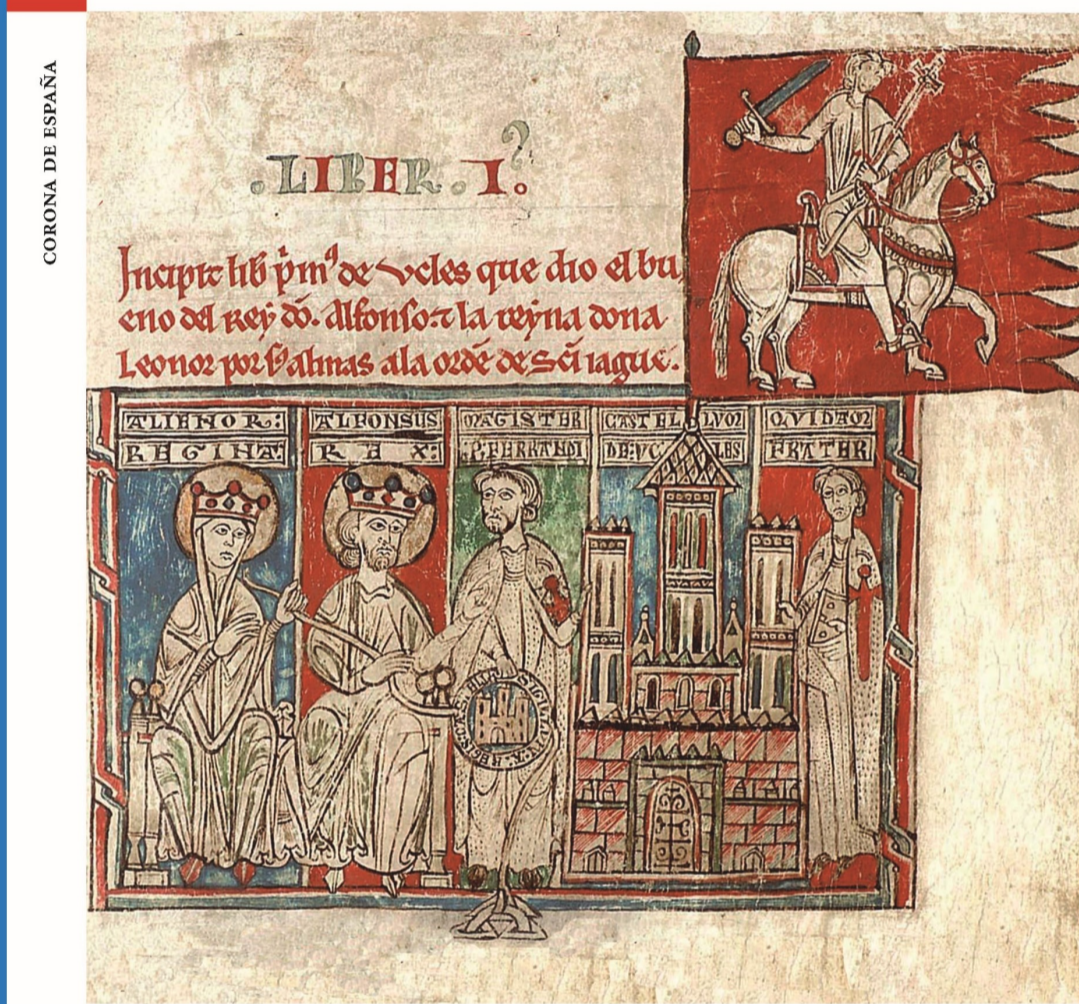 CORONA DE ESPAÑA
.LIBER.I?
Incipit lib̄ p̄im⁹ de vcles que dio el bu
eno del Rey dō. Alfonso.⁊ la reyna dona
Leonor por almas ala ordē de Sc̄i iague.
ALIENOR:
REGINA:
ALFONSUS
REX:
MAGISTER
P. FERRANDI
CASTELLUM
DE UCLES
QVIDAM
FRATER